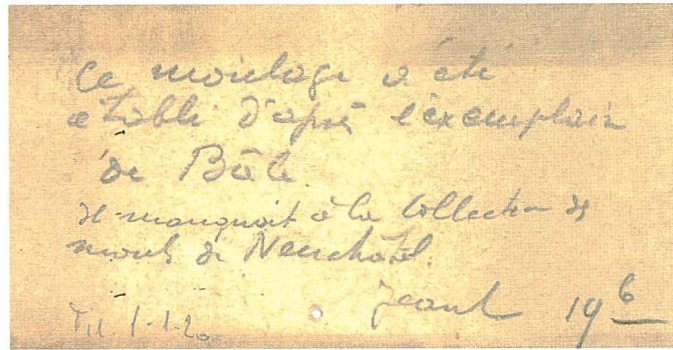 Ce moulage a été
établi d'après l'exemplaire
de Bâle.
Il manquait à la Collection de
moul de Neuchâtel.
19 6
T.II. 1-1-20